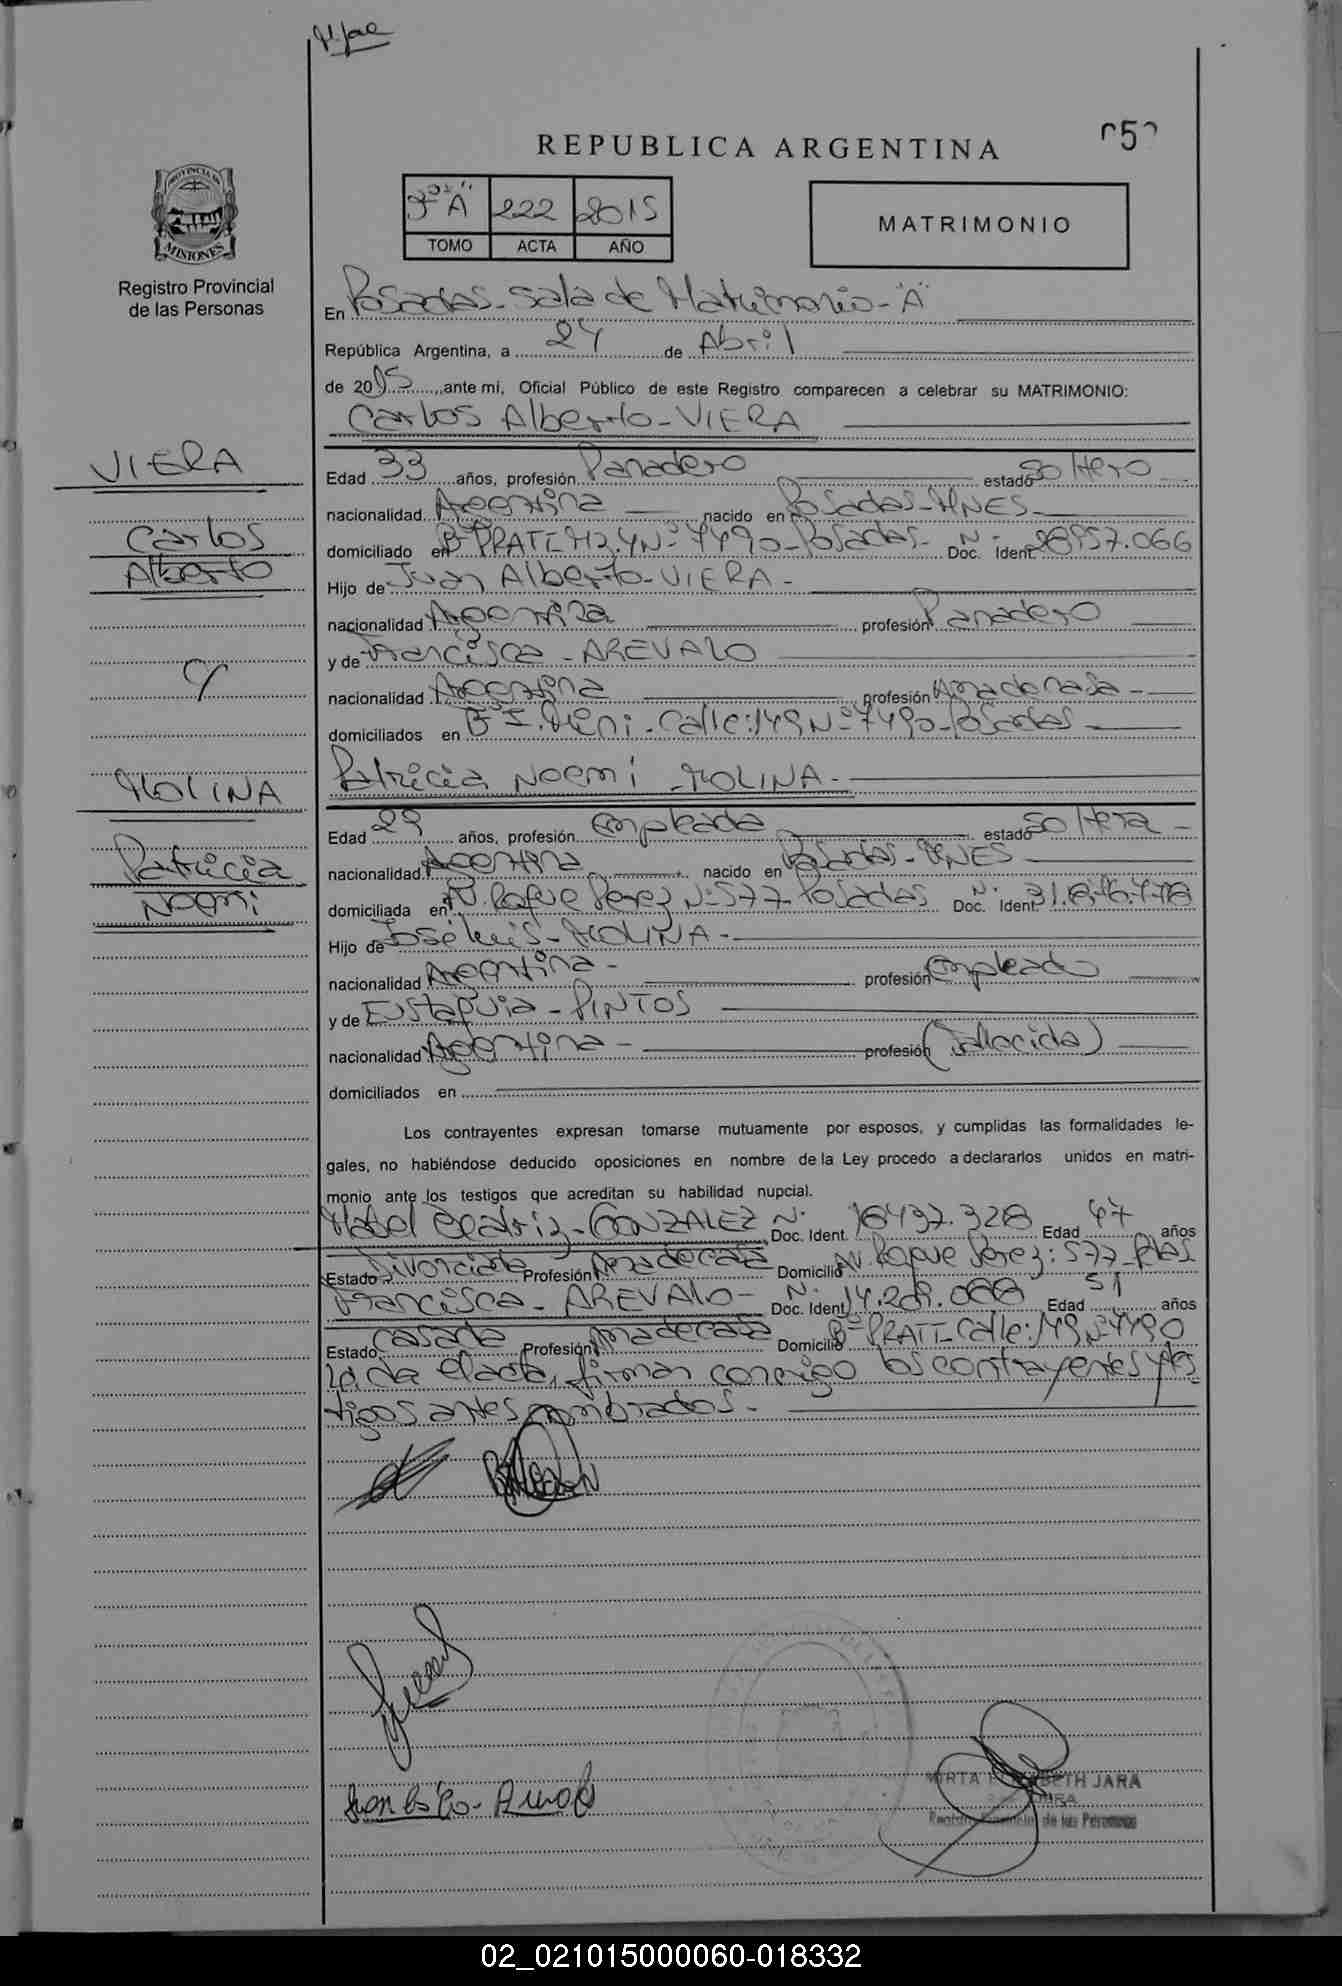 REPUBLICA ARGENTINA
PROVINCIA DE
MISIONES
Registro Provincial
de las Personas
3º "A" 222 2015
TOMO ACTA AÑO
MATRIMONIO
En Posadas - Sala de Matrimonio - "A"
República Argentina, a 24 de Abril
de 2015 ante mí, Oficial Público de este Registro comparecen a celebrar su MATRIMONIO:
Carlos Alberto - VIERA
VIERA
Carlos
Alberto
y
MOLINA
Patricia
Noemi
Edad 33 años, profesión Panadero estado Soltero
nacionalidad Argentina nacido en Posadas - MNES -
domiciliado en Bº PRATI - MZ. 4 Nº 7490 - Posadas - Doc. Ident. Nº 28957.066
Hijo de Juan Alberto - VIERA -
nacionalidad Argentina profesión Panadero
y de Francisca - AREVALO
nacionalidad Argentina profesión Amadecasa -
domiciliados en Bº Calle: 149 Nº 7490 - Posadas -
Patricia Noemi - MOLINA -
Edad 29 años, profesión empleada estado Soltera -
nacionalidad Argentina nacido en Posadas - MNES
domiciliada en AV. Roque Perez Nº 577 - Posadas Doc. Ident. Nº
Hijo de José Luis - MOLINA -
nacionalidad Argentina - profesión empleado
y de Eustaquia - PINTOS
nacionalidad Argentina - profesión (Fallecida)
domiciliados en
Los contrayentes expresan tomarse mutuamente por esposos, y cumplidas las formalidades le-
gales, no habiéndose deducido oposiciones en nombre de la Ley procedo a declararlos unidos en matri-
monio ante los testigos que acreditan su habilidad nupcial.
Mabel Beatriz - GONZALEZ Nº Doc. Ident. 18437.328 Edad 47 años
Estado Divorciada Profesión Amadecasa Domicilio AV. Roque Perez: 577 - Pdas
Francisca - AREVALO - Nº Doc. Ident. Edad 51 años
Estado Casada Profesión Amadecasa Domicilio Bº PRATI - Calle: 149 Nº 7490
Leída el acta, firman conmigo los contrayentes y tes
tigos antes nombrados. -
MIRTA ELIZABETH JARA
Registro Provincial de las Personas
02_021015000060-018332